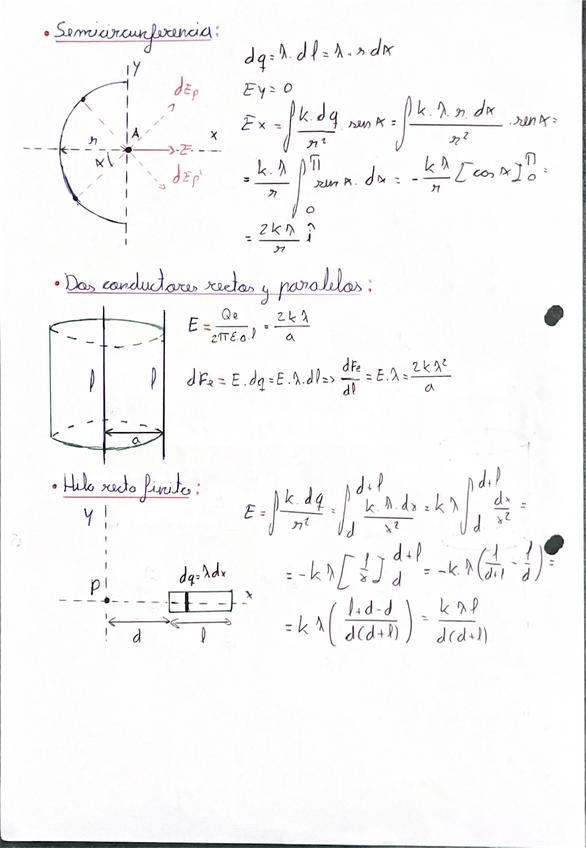 • Semicircunferencia:
y
dEp
A
r
x
E
α
dEp'
dq = λ · dl = λ · r dα
Ey = 0
Ex = ∫ k·dq/r² · sen α = ∫ k·λ·r·dα/r² · sen α =
= k·λ/r ∫₀^π sen α · dα = -kλ/r [cos α]₀^π =
= 2kλ/r î
• Dos conductores rectos y paralelos:
l
l
a
E = Qe/2πε₀·a·l = 2kλ/a
dFe = E·dq = E·λ·dl => dFe/dl = E·λ = 2kλ²/a
• Hilo recto finito:
y
P
dq=λdx
x
d
l
E = ∫ k·dq/r² = ∫_d^{d+l} k·λ·dx/x² = kλ ∫_d^{d+l} dx/x² =
= -kλ [1/x]_d^{d+l} = -k·λ (1/d+l - 1/d) =
= kλ (l+d-d/d(d+l)) = kλl/d(d+l)